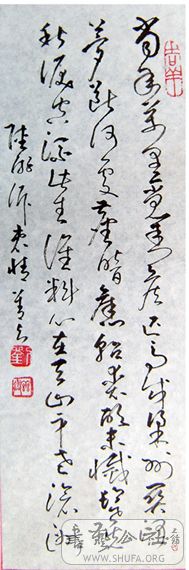 吉羊
當年萬里覓封侯匹馬戍梁州關河
夢斷何處塵暗舊貂裘胡未滅鬢先
秋淚空流此生誰料心在天山身老滄洲
陸游訴衷情
劉
WWW.SHUFA.ORG